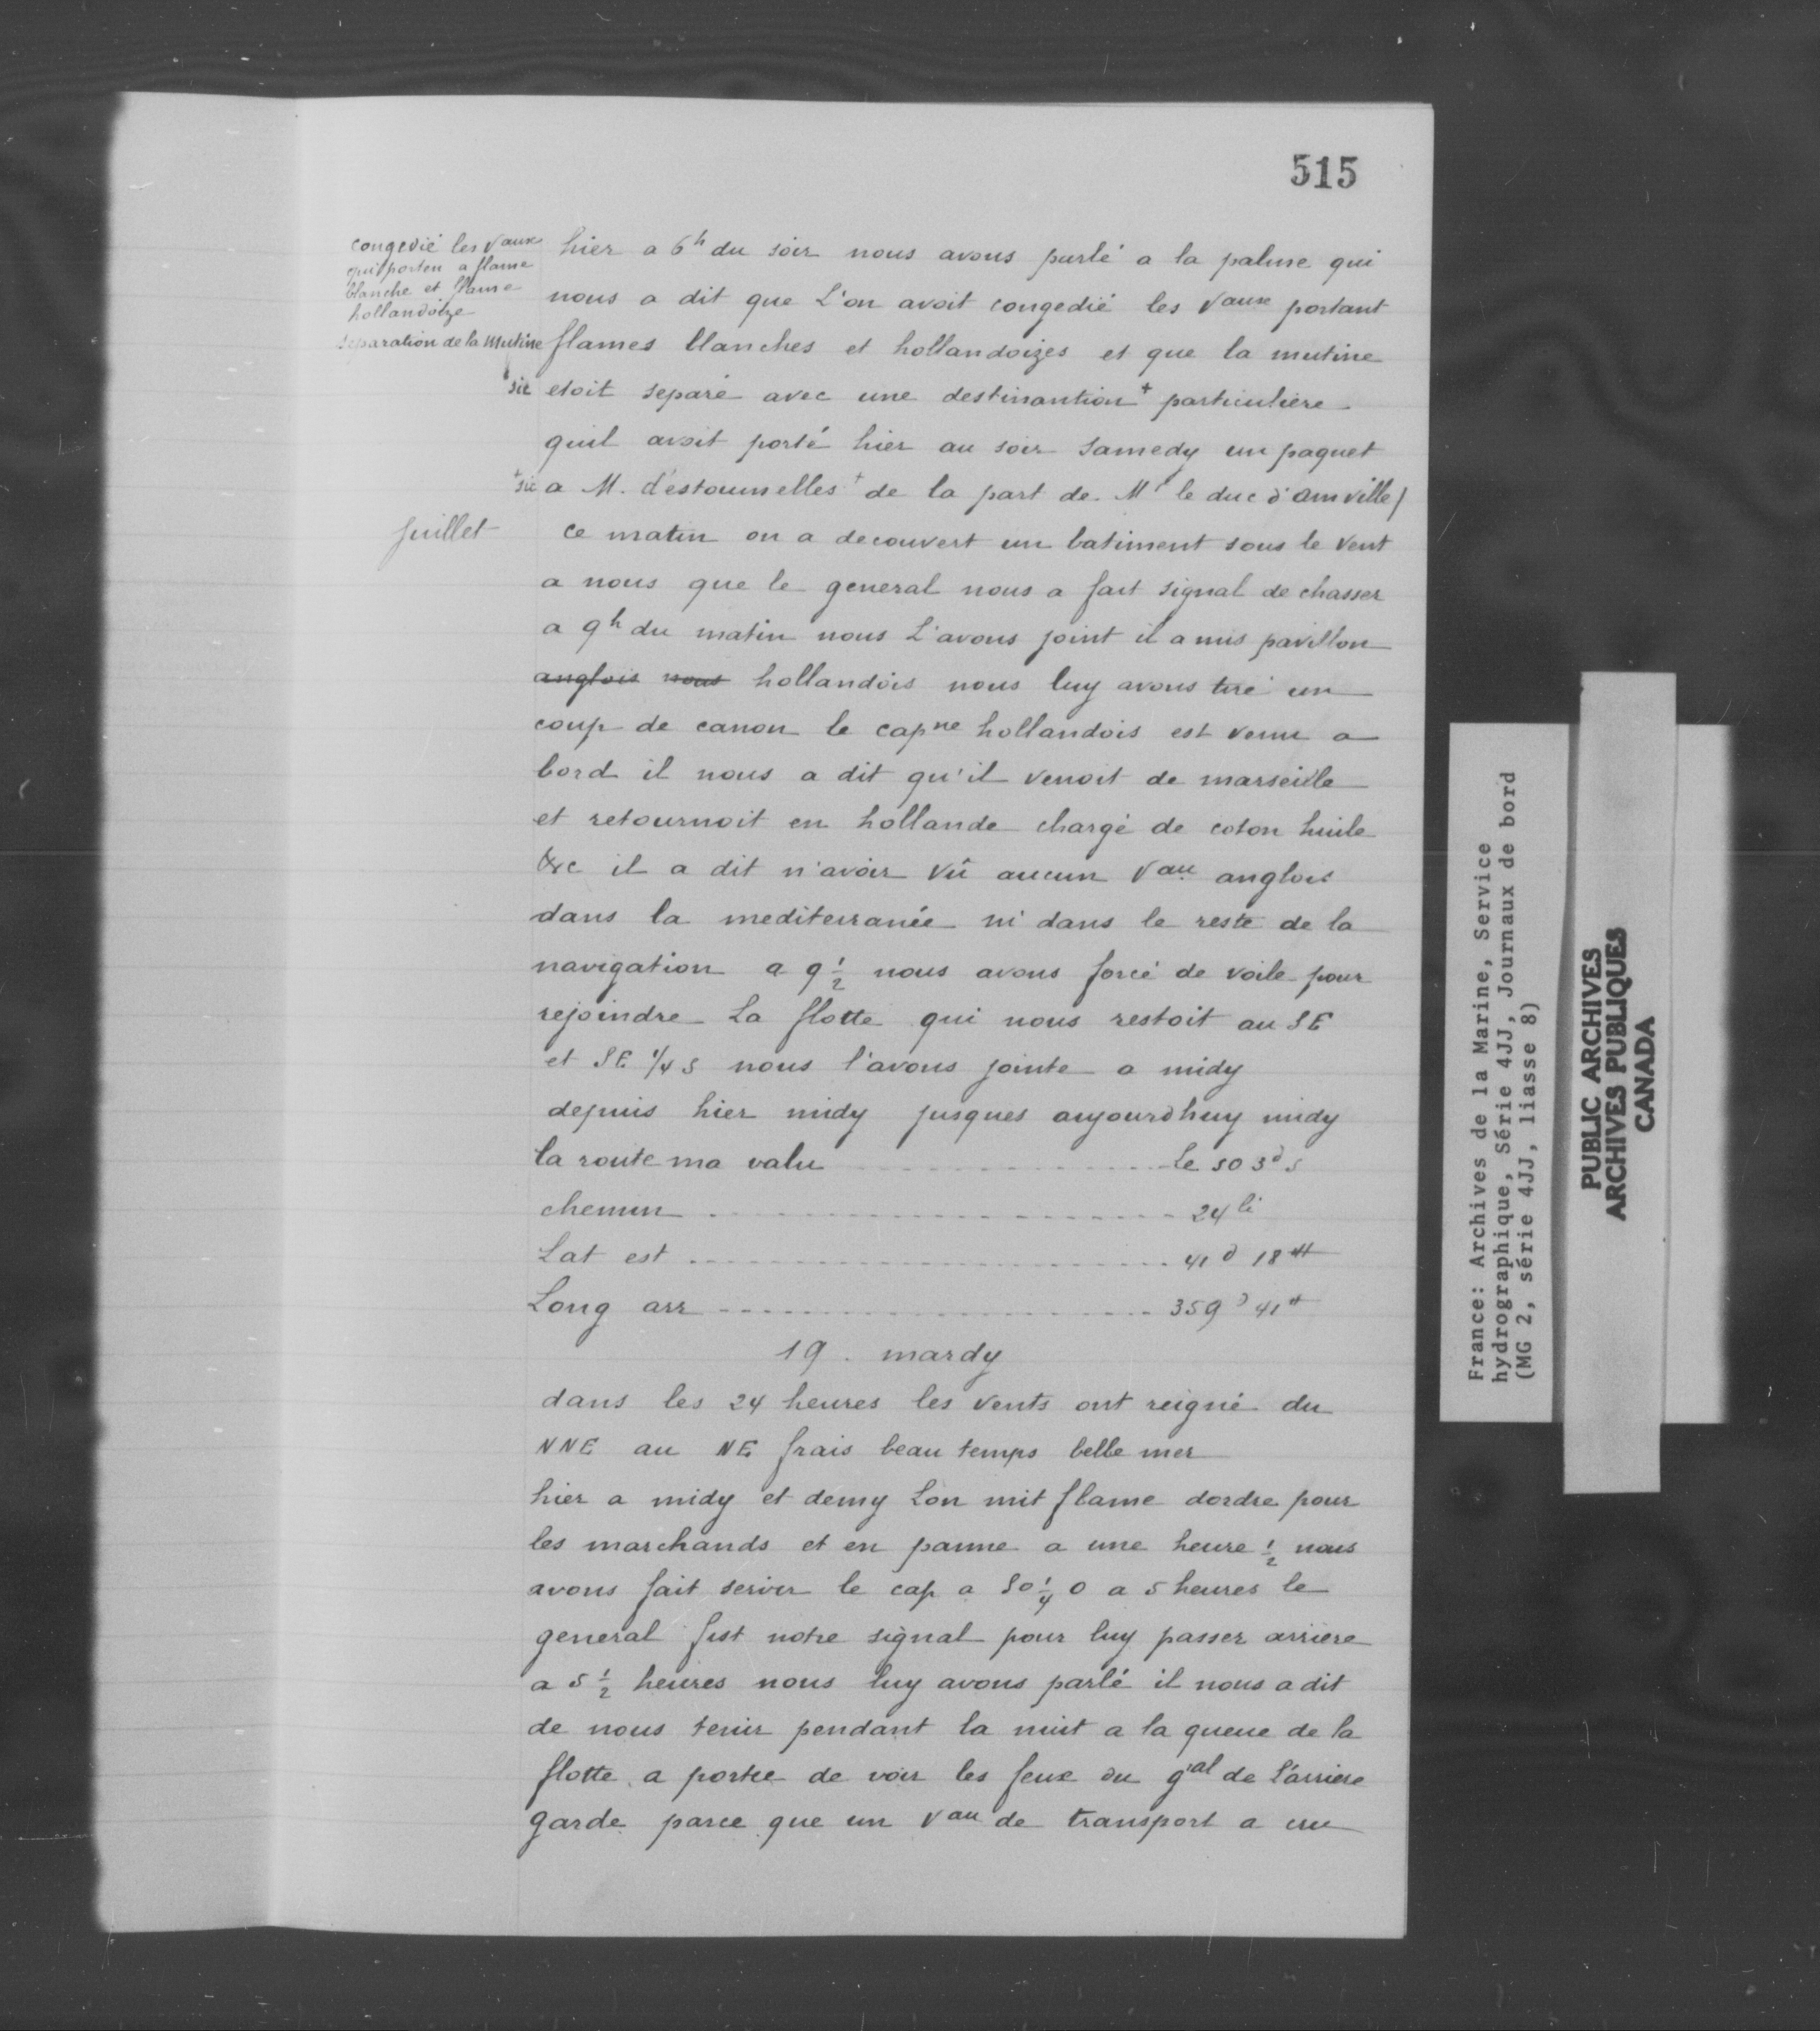 515
congedié les Vaux
qui porten a flame
blanche et flame
hollandoize
separation de la Mutine
hier a 6h du soir nous avons parlé a la palme qui
nous a dit que L'on avoit congedié les Vaux portant
flames blanches et hollandoizes et que la mutine
sic etoit separé avec une destinantion + particuliere
quil avoit porté hier au soir Samedy un paquet
+sic a M. d'estournelles + de la part de Mr le duc d'amville/
Juillet
ce matin on a decouvert un batiment sous le vent
a nous que le general nous a fait signal de chasser
a 9h du matin nous L'avons joint il a mis pavillon
anglois nous hollandois nous luy avons tiré un
coup de canon le capne hollandois est venu a
bord il nous a dit qu'il venoit de marseille
et retournoit en hollande chargé de coton huile
&c il a dit n'avoir vû aucun Vau anglois
dans la mediterranée ni dans le reste de la
navigation a 9 1/2 nous avons forcé de voile pour
rejoindre La flotte qui nous restoit au SE
et SE 1/4 S nous l'avons jointe a midy
depuis hier midy jusques aujourdhuy midy
la route ma valu le SO 3d S
chemin 24 li
Lat est 41d 18tt
Long arr 359d 41t
19. mardy
dans les 24 heures les vents ont reigné du
NNE au NE frais beau temps belle mer
hier a midy et demy Lon mit flame dordre pour
les marchands et en panne a une heure 1/2 nous
avons fait servir le cap a SO 1/4 O a 5 heures le
general fist notre signal pour luy passer arriere
a 5 1/2 heures nous luy avons parlé il nous a dit
de nous tenir pendant la nuit a la queue de la
flotte a portee de voir les feux du gral de l'arriere
garde parce que un Vau de transport a cru
France: Archives de la Marine, Service
hydrographique, Série 4JJ, Journaux de bord
(MG 2, série 4JJ, liasse 8)
PUBLIC ARCHIVES
ARCHIVES PUBLIQUES
CANADA